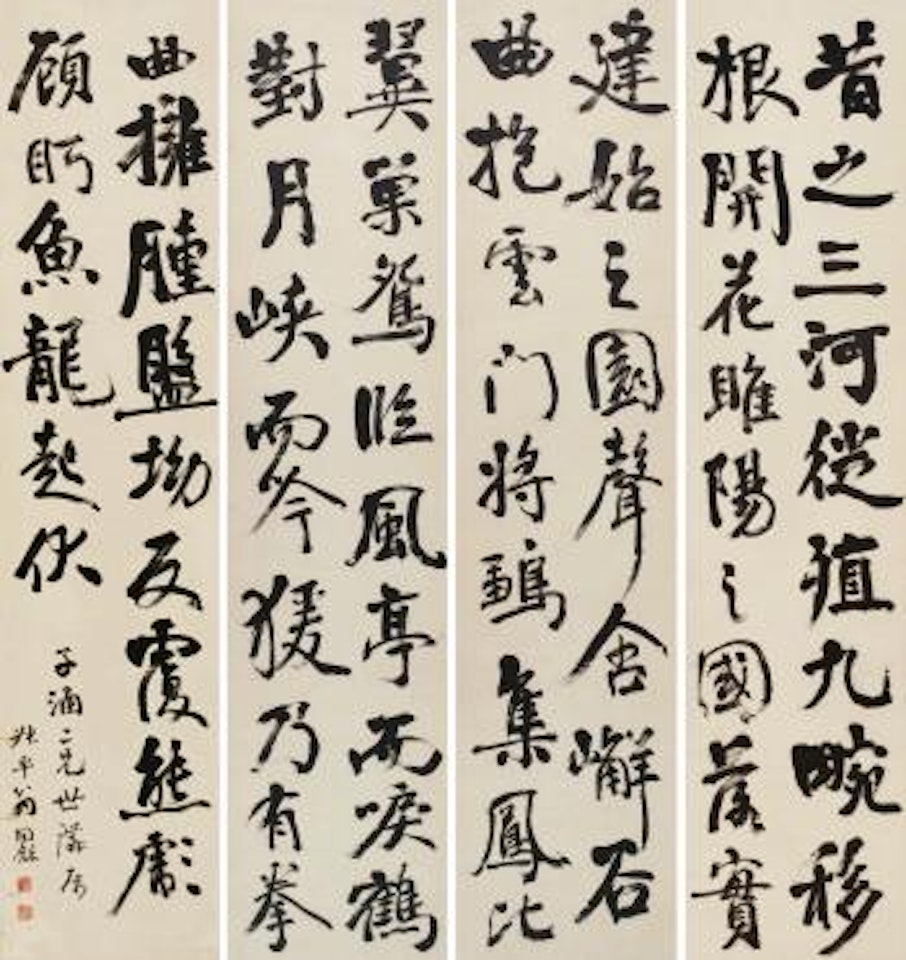 昔之三河徙殖九畹移
根開花睢陽之國落實
建始之園聲含嶰石
曲抱雲門將鶵集鳳比
翼巢鴛臨風亭而唳鶴
對月峽而吟猨乃有拳
曲擁腫盤坳反覆熊彪
顧眄魚龍起伏
子涵二兄世講屬
叔平翁同龢